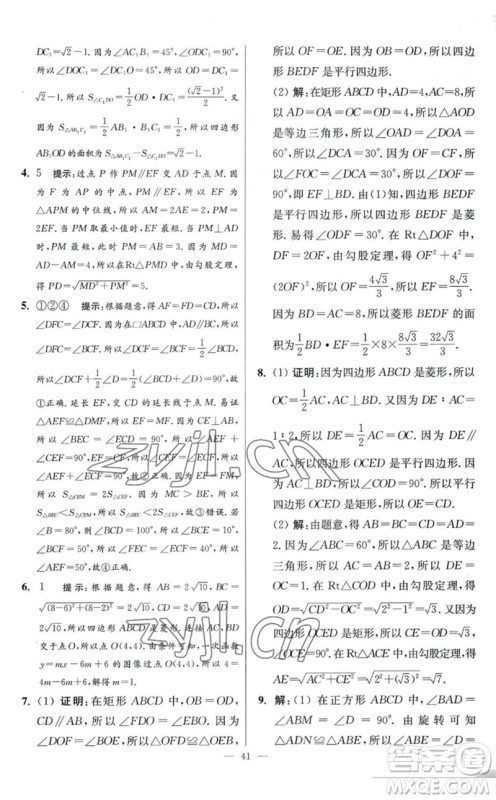 DC₁=√2-1. 因为∠AC₁B₁=45°，∠ODC₁=90°，
所以∠DOC₁=45°，所以∠DC₁O=45°，所以OD=
√2-1. 所以S△ODC₁=1/2 OD·DC₁=(√2-1)²/2. 又
因为S△AB₁C₁=1/2 AB₁·B₁C₁=1/2，所以四边形
AB₁OD的面积为S△AB₁C₁-S△ODC₁=√2-1.
4. 5 提示：过点P作PM∥EF交AD于点M. 因
为F为AP的中点，PM∥EF，所以EF为
△APM的中位线，所以AM=2AE=2，PM=
2EF. 当PM取最小值时，EF取最小值. 当
PM最短时，EF最短，所以PM⊥AD，所以
PM=AB=4，所以在Rt△PMD中，由勾股定理，
得PD=√(MD²+PM²)=5.
5. ①②④ 提示：根据题意，得AF=FD=CD，所以
∠DCF=∠DFC. 因为在□ABCD中，AD∥BC，所以
∠DFC=∠BCF，所以∠DCF=∠BCF=1/2∠BCD，
所以∠DCF+1/2∠D=1/2(∠BCD+∠D)=90°，故
①正确. 延长EF，交CD的延长线于点M. 易证
△AEF≌△DMF，所以EF=MF. 因为CE⊥AB，所
以∠BEC=∠ECD=90°，所以CF=1/2EM=EF，
∠AEF+∠CEF=90°，故②正确. 因为EF=FM，所
以S△CEM=2S△CEF. 因为MC>BE，所以
S△BEC<S△CEM，所以S△BEC<2S△CEF，故③错误. 若
∠B=80°，则∠BCE=10°，所以∠DCE=90°，所以
∠BCF=50°，所以∠ECF=40°，故④正确.
6. 1 提示：根据题意，得AB=2√10，BC=
√((8-6)²+(8-2)²)=2√10，CD=2√10，AD=
2√10，所以四边形ABCD是菱形. 连接AC，BD
交于点O，所以点O(4,4). 由条件可知，一次函数
y=mx-6m+6的图像过点O(4,4)，所以4=
4m-6m+6，解得m=1.
7. (1) 证明：因为在矩形ABCD中，OB=OD，
CD∥AB，所以∠DFO=∠BEO. 又因为
∠DOF=∠BOE，所以△OFD≌△OEB，
所以OF=OE. 因为OB=OD，所以四边
形BEDF是平行四边形.
(2) 解：在矩形ABCD中，AD=4，AC=8，所
以AD=OA=OC=OD=4，所以△AOD是
等边三角形，所以∠OAD=∠ODA=
60°，所以∠DCA=30°. 因为∠DCA=
∠FOC=30°，所以∠FOD=90°，所以
EF⊥BD. 由(1)得，所以四边形BEDF是菱
形. 易得∠ODF=30°. 在Rt△ODF中，
∠FOD=90°，由勾股定理，得OF²+4²=
(2OF)²，所以OF=4√3/3，所以EF=8√3/3. 因
为BD=AC=8，所以菱形BEDF的面
积为1/2BD·EF=1/2×8×8√3/3=32√3/3.
9. (1) 证明：因为四边形ABCD是菱形，所以
OC=1/2AC，AC⊥BD. 因为DE∶AC=
1∶2，所以DE=1/2AC=OC. 因为DE∥
AC，所以四边形OCED是平行四边形. 因
为∠COD=90°，所以平行四边形
OCED是矩形，所以OE=CD.
(2) 解：由题意，得OA=OC=1，AD=
2. 因为∠ABC=60°，所以△ABC是等边
三角形，所以AC=AB=2，所以OA=
OC=1. 在Rt△OCD中，由勾股定理，得
OD=√(CD²-OC²)=√(2²-1²)=√3. 因
为四边形OCED是矩形，所以CE=OD=
√3，∠OCE=90°. 在Rt△ACE中，由勾股
定理，得AE=√(AC²+CE²)=√(4+3)=√7.
9. 解：(1) 在正方形ABCD中，因为∠BAD=
∠ABM=∠D=90°，由旋转可知
∠ABN=∠ADE，所以∠ABN=90°，
41
zyjl.cn
zyjl.cn
答案圈